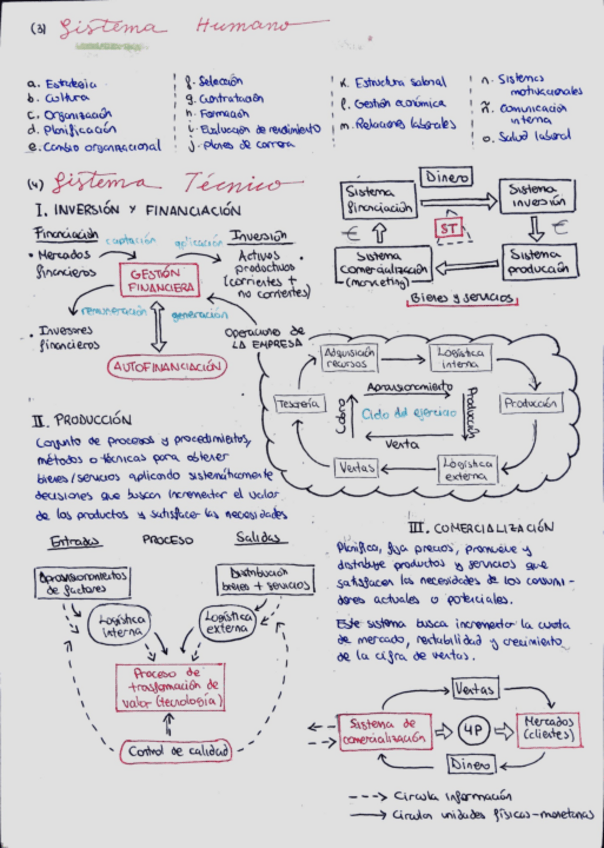 (3) Sistema Humano
a. Estrategia
b. Cultura
c. Organización
d. Planificación
e. Cambio organizacional
f. Selección
g. Contratación
h. Formación
i. Evaluación de rendimiento
j. Planes de carrera
k. Estructura salarial
l. Gestión económica
m. Relaciones laborales
n. Sistemas
motivacionales
ñ. Comunicación
interna
o. Salud laboral
(4) Sistema Técnico
I. INVERSIÓN Y FINANCIACIÓN
Financiación
captación
aplicación
Inversión
• Mercados
financieros
GESTIÓN
FINANCIERA
• Activos
productivos
(corrientes +
no corrientes)
remuneración
generación
• Inversores
financieros
Operaciones de
LA EMPRESA
AUTOFINANCIACIÓN
Dinero
Sistema
financiación
Sistema
inversión
€
ST
€
Sistema
comercialización
(marketing)
Sistema
producción
Bienes y servicios
Adquisición
recursos
Logística
interna
Aprovisionamiento
Tesorería
Cobro
Ciclo del ejercicio
Producción
Producción
Venta
Ventas
Logística
externa
II. PRODUCCIÓN
Conjunto de procesos y procedimientos,
métodos o técnicas para obtener
bienes/servicios aplicando sistemáticamente
decisiones que buscan incrementar el valor
de los productos y satisfacer las necesidades
Entradas PROCESO Salidas
Aprovisionamientos
de factores
Distribución
bienes + servicios
Logística
interna
Logística
externa
Proceso de
transformación de
valor (tecnología)
Control de calidad
III. COMERCIALIZACIÓN
Planifica, fija precios, promueve y
distribuye productos y servicios que
satisfacen las necesidades de los consumi-
dores actuales o potenciales.
Este sistema busca incrementar la cuota
de mercado, rentabilidad y crecimiento
de la cifra de ventas.
Ventas
Sistema de
comercialización
4P
Mercados
(clientes)
Dinero
---> Circula información
—> Circulan unidades físicas-monetarias